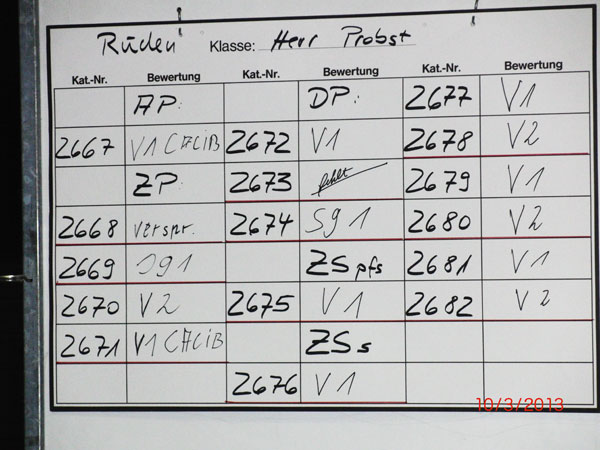 Rüden Klasse: Herr Probst
Kat.-Nr. Bewertung Kat.-Nr. Bewertung Kat.-Nr. Bewertung
AP: DP: 2677 V1
2667 V1 CACiB 2672 V1 2678 V2
ZP: 2673 fehlt 2679 V1
2668 verspr. 2674 Sg1 2680 V2
2669 Sg1 ZS pfs 2681 V1
2670 V2 2675 V1 2682 V2
2671 V1 CACiB ZSs
2676 V1
10/3/2013